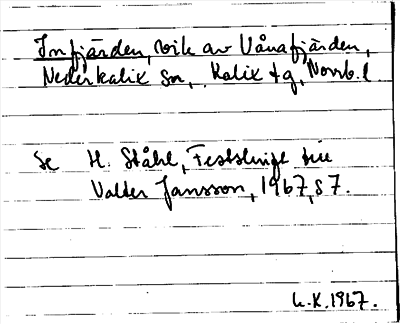 Innfjärden, vik av Vånafjärden,
Nederkalix sn, Kalix tg, Norrb. l.
Se H. Ståhl, Festskrift till
Valter Jansson, 1967, s 7.
L.K. 1967.